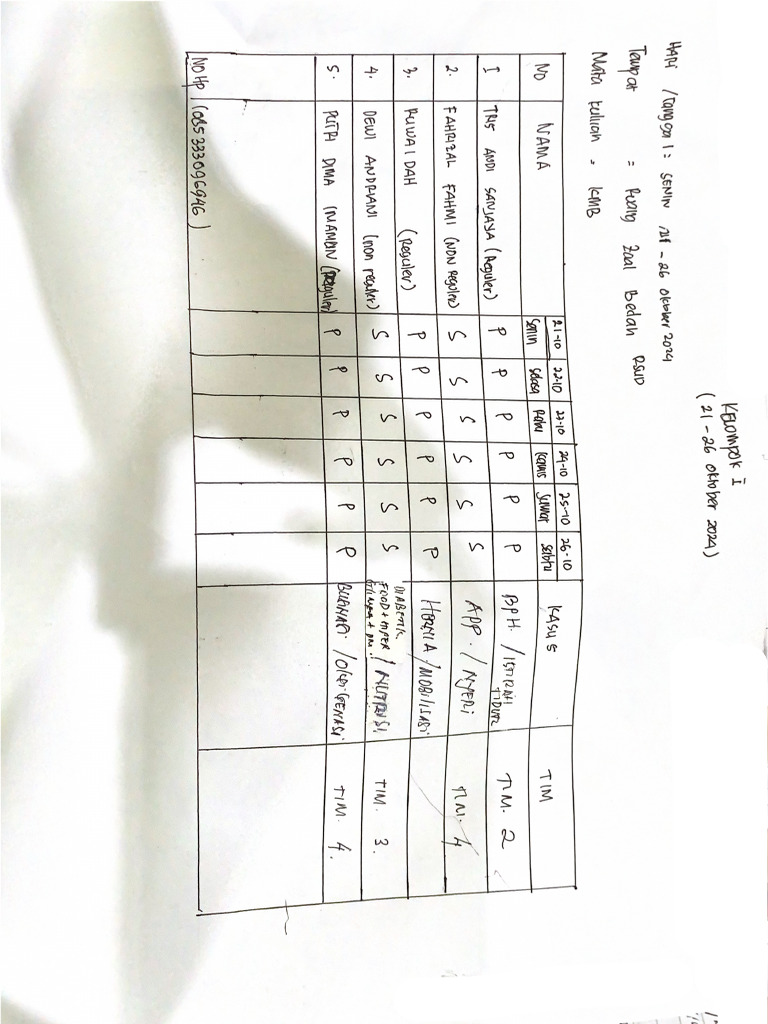 KELOMPOK I
(21 - 26 Oktober 2024)
HARI / Tanggal : SENIN 21 - 26 Oktober 2024
Tempat = Ruang Zaal Bedah RSUD
Mata kuliah = KMB
NO NAMA 21-10 22-10 23-10 24-10 25-10 26-10 KASUS TIM
Senin Selasa Rabu Kamis Jumat Sabtu
1 TRIS ANDI SANJAYA (Reguler) P P P P P P BPH. / ISTIRAHAT TIDUR TIM. 2
2. FAHRIZAL FAHMI (NON Reguler) S S S S S S APP. / NYERI TIM. 4
3. RUWAIDAH (Reguler) P P P P P P HERNIA / MOBILISASI
4. DEWI ANDRIANI (non reguler) S S S S S S DIABETIK FOOD + HIPER / NUTRISI TIM. 3.
5. PUTRI DIMA (Reguler) P P P P P P / OKSIGENASI TIM. 4.
NO Hp (085333096946)